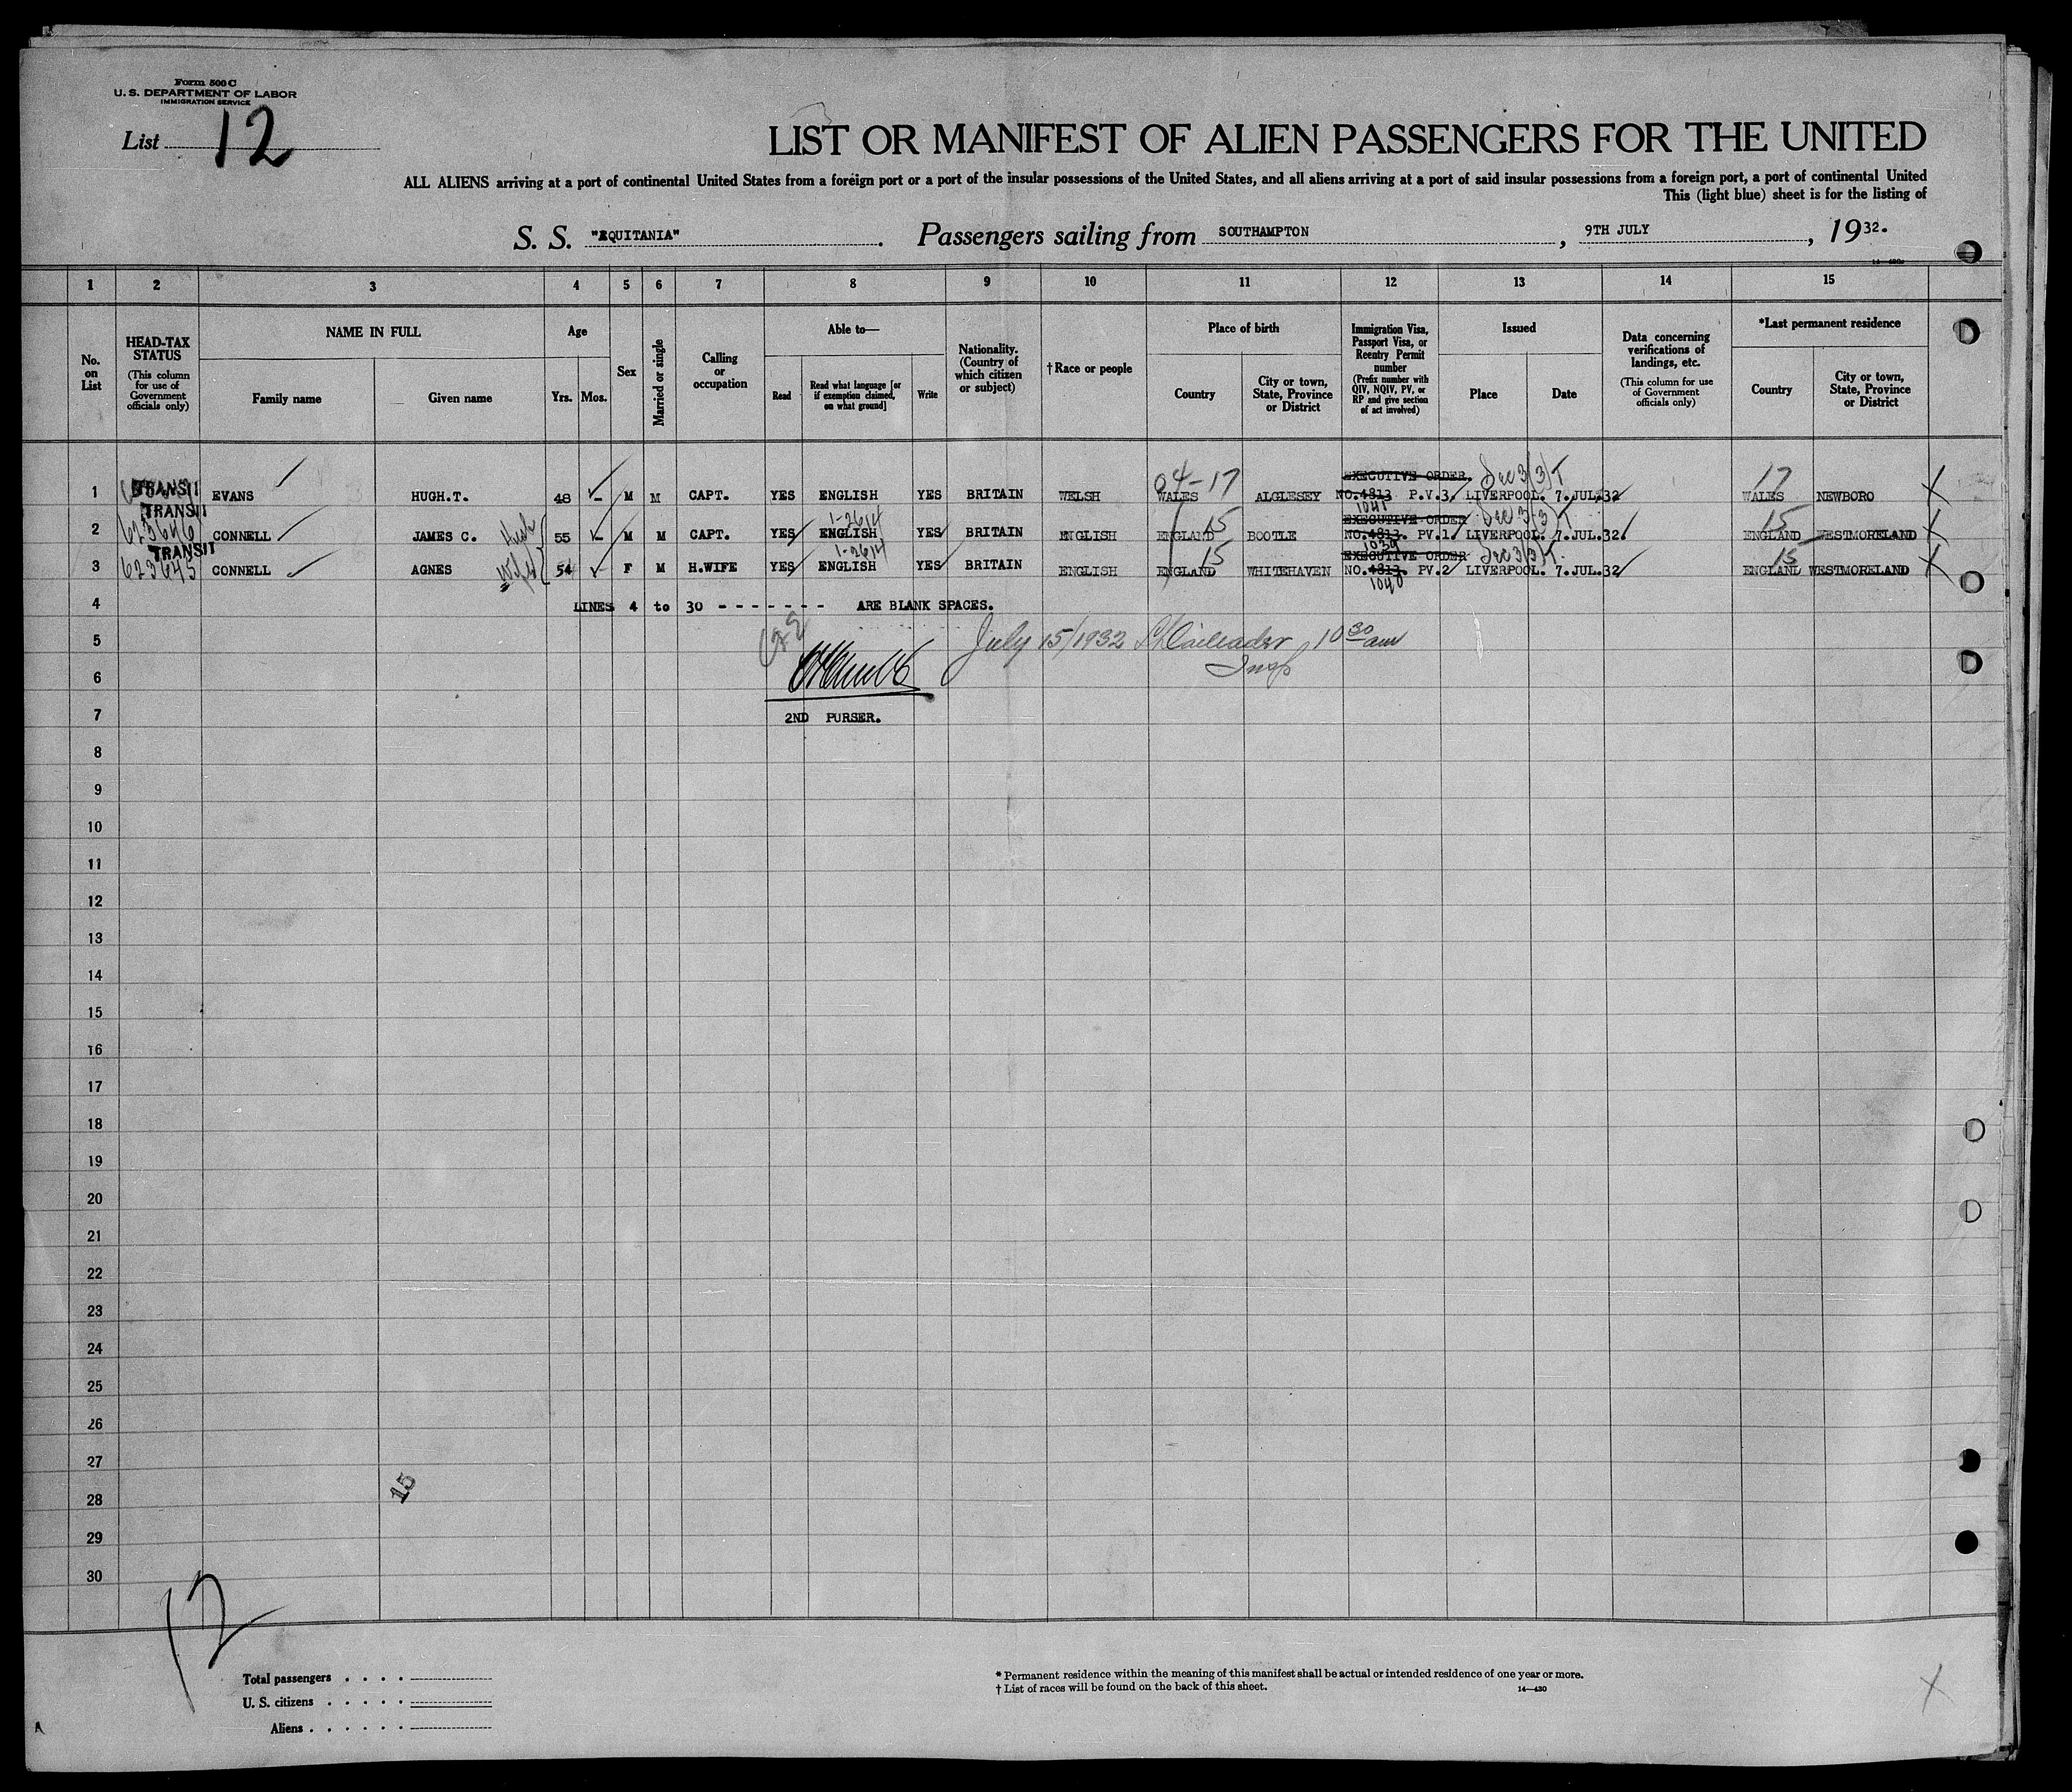 Form 500 C
U. S. DEPARTMENT OF LABOR
IMMIGRATION SERVICE
List 12
LIST OR MANIFEST OF ALIEN PASSENGERS FOR THE UNITED
ALL ALIENS arriving at a port of continental United States from a foreign port or a port of the insular possessions of the United States, and all aliens arriving at a port of said insular possessions from a foreign port, a port of continental United
This (light blue) sheet is for the listing of
S. S. "EQUITANIA". Passengers sailing from SOUTHAMPTON, 9TH JULY, 1932.
14—430
1 2 3 4 5 6 7 8 9 10 11 12 13 14 15
No. on List
HEAD-TAX STATUS (This column for use of Government officials only)
NAME IN FULL
Family name Given name
Age
Yrs. Mos.
Sex
Married or single
Calling or occupation
Able to—
Read Read what language [or if exemption claimed, on what ground] Write
Nationality. (Country of which citizen or subject)
†Race or people
Place of birth
Country City or town, State, Province or District
Immigration Visa, Passport Visa, or Reentry Permit number (Prefix number with QIV, NQIV, PV, or RP and give section of act involved)
Issued
Place Date
Data concerning verifications of landings, etc. (This column for use of Government officials only)
*Last permanent residence
Country City or town, State, Province or District
TRANSIT 04-17 EXECUTIVE ORDER. Sec 3(3)T 17
1 EVANS HUGH.T. 48 - M M CAPT. YES ENGLISH YES BRITAIN WELSH WALES ALGLESEY NO.4813 P.V.3, LIVERPOOL. 7.JUL.32 WALES NEWBORO X
TRANSIT 1-2614 15 1041 EXECUTIVE ORDER Sec 3(3)T 15
2 623646 CONNELL JAMES C. Husb 55 - M M CAPT. YES ENGLISH YES BRITAIN ENGLISH ENGLAND BOOTLE NO.4813. PV.1 LIVERPOOL. 7.JUL.32. ENGLAND WESTMORELAND X
TRANSIT 1-2614 15 1039 EXECUTIVE ORDER Sec 3(3)T. 15
3 623645 CONNELL AGNES Wife 54 F M H.WIFE YES ENGLISH YES BRITAIN ENGLISH ENGLAND WHITEHAVEN NO.4813. PV.2 LIVERPOOL. 7.JUL.32 ENGLAND WESTMORELAND X
1040
4 LINES 4 to 30 - - - - - - - ARE BLANK SPACES.
5 July 15/1932 10 30 am
6 Insp
7 2ND PURSER.
8
9
10
11
12
13
14
15
16
17
18
19
20
21
22
23
24
25
26
27
28 15
29
30
12
Total passengers . . . .
U. S. citizens . . . . .
Aliens . . . . . .
* Permanent residence within the meaning of this manifest shall be actual or intended residence of one year or more.
† List of races will be found on the back of this sheet.
14—430
X